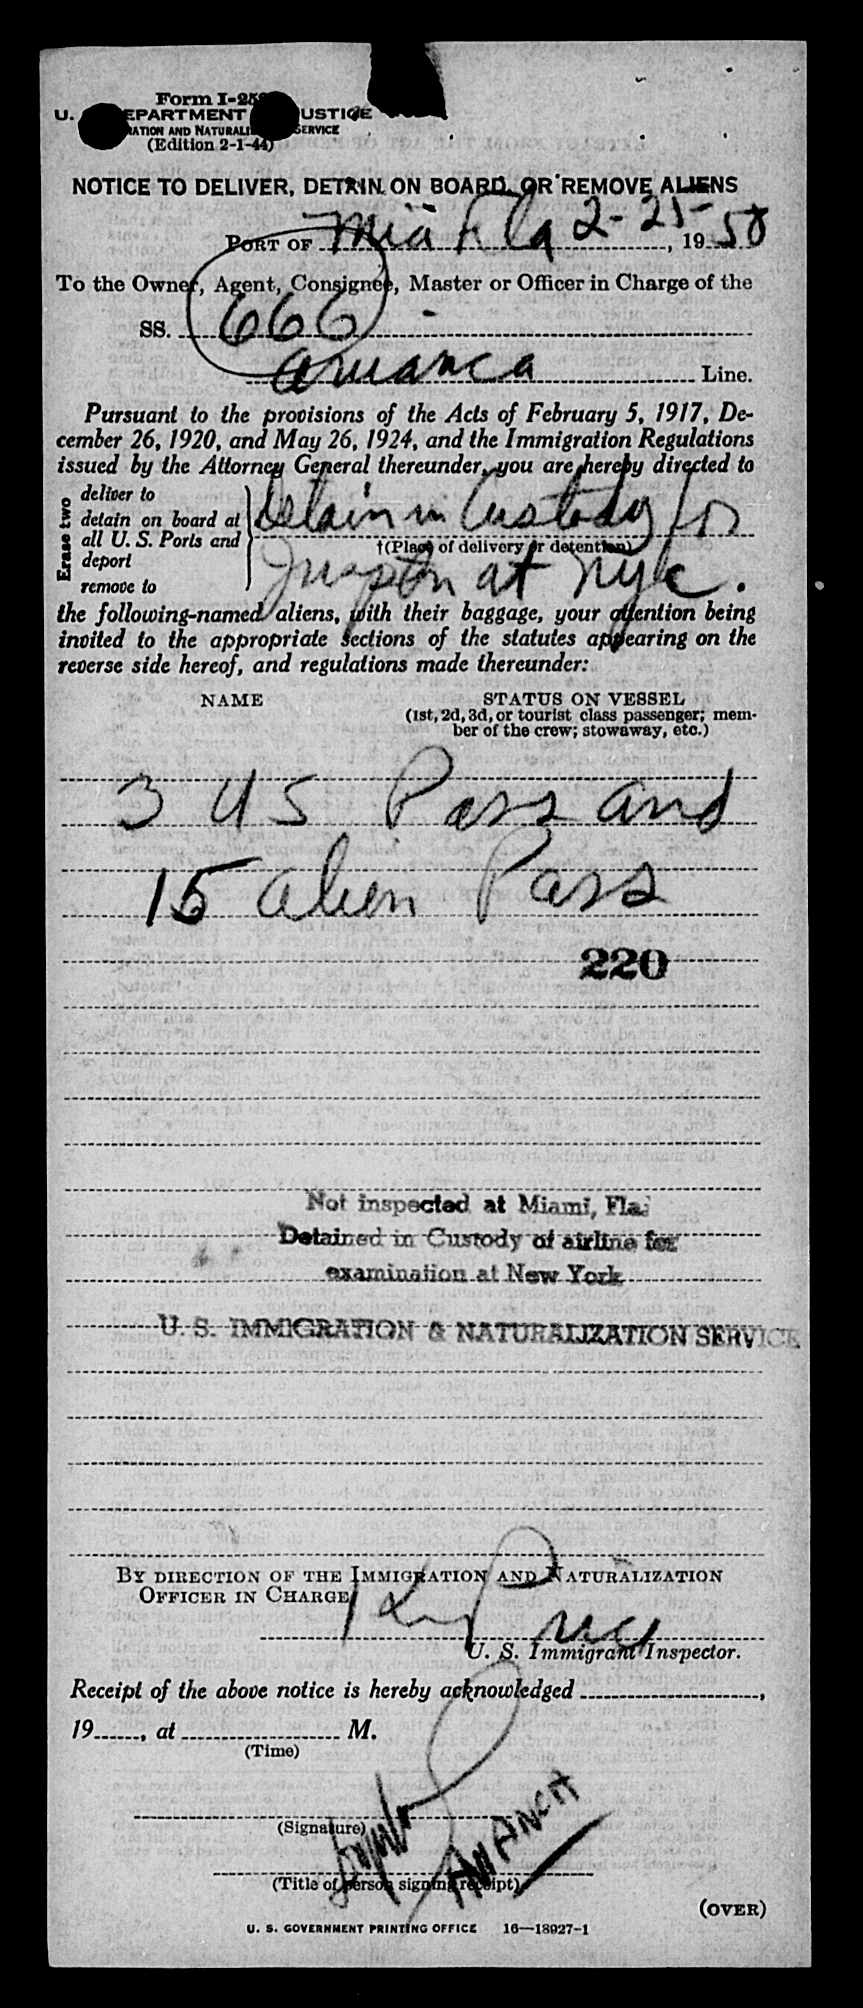 Form I-25
U. EPARTMENT USTICE
ATION AND NATURALI SERVICE
(Edition 2-1-44)
NOTICE TO DELIVER, DETAIN ON BOARD, OR REMOVE ALIENS
PORT OF Mia Fla 2-25-, 1950
To the Owner, Agent, Consignee, Master or Officer in Charge of the
SS. 666
Avianca Line.
Pursuant to the provisions of the Acts of February 5, 1917, De-
cember 26, 1920, and May 26, 1924, and the Immigration Regulations
issued by the Attorney General thereunder, you are hereby directed to
Erase two
deliver to
detain on board at
all U. S. Ports and
deport
remove to
Detain in Custody for
†(Place of delivery or detention)
at NYC.
the following-named aliens, with their baggage, your attention being
invited to the appropriate sections of the statutes appearing on the
reverse side hereof, and regulations made thereunder:
NAME STATUS ON VESSEL
(1st, 2d, 3d, or tourist class passenger; mem-
ber of the crew; stowaway, etc.)
3 US Pass and
15 alien Pass
220
Not inspected at Miami, Fla.
Detained in Custody of airline for
examination at New York
U. S. IMMIGRATION & NATURALIZATION SERVICE
BY DIRECTION OF THE IMMIGRATION AND NATURALIZATION
OFFICER IN CHARGE
U. S. Immigrant Inspector.
Receipt of the above notice is hereby acknowledged ,
19 , at M.
(Time)
(Signature)
AVIANCA
(Title of person signing receipt)
(OVER)
U. S. GOVERNMENT PRINTING OFFICE 16—18927-1